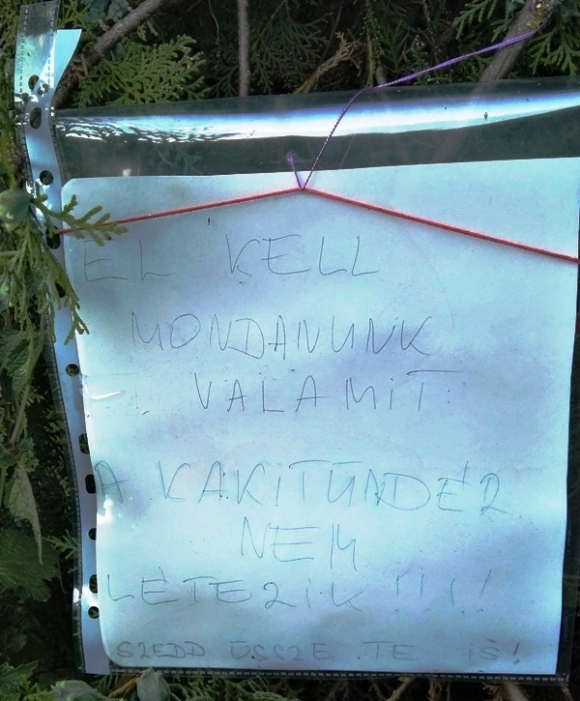 EL KELL
MONDANUNK
VALAMIT
A KAKITÜNDÉR
NEM
LÉTEZIK !!!!
SZEDD ÖSSZE TE IS!